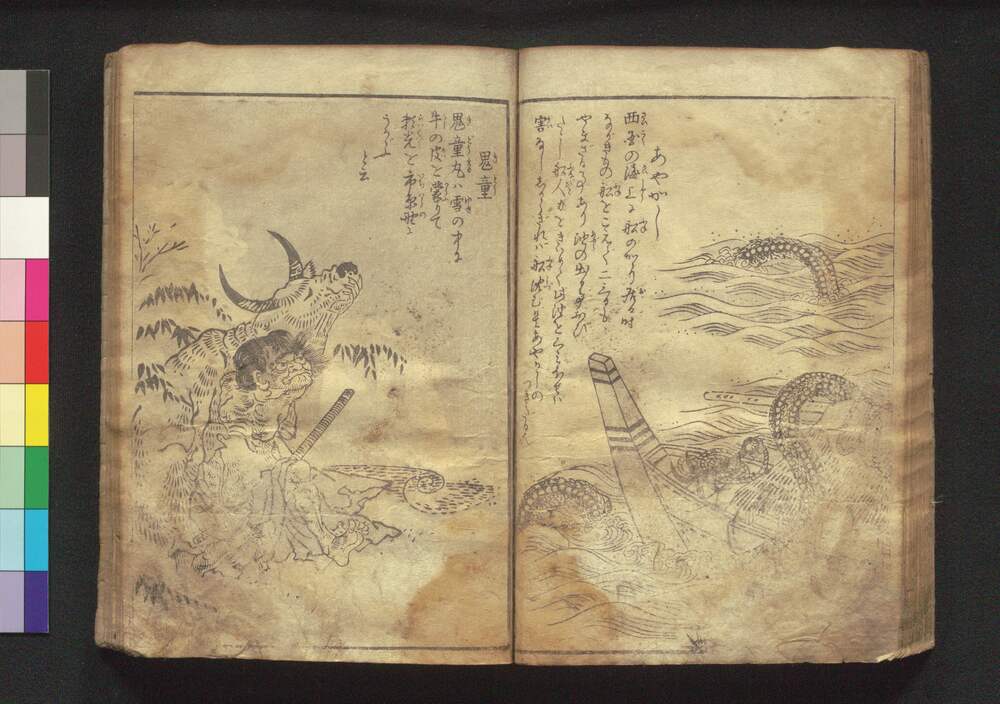 あやかし
西国の海上に船のかゝり居る時
ながきもの船をこえて二三日も
やまざる事あり油の出る事おび
たゝし船人力をきはめて此油をくみほせば
害なししからざれば船沈む是あやかしの
つきたる也
鬼童
鬼童丸ハ雪の中に
牛の皮を蒙りて
頼光を市原野に
うかゞふ
と云